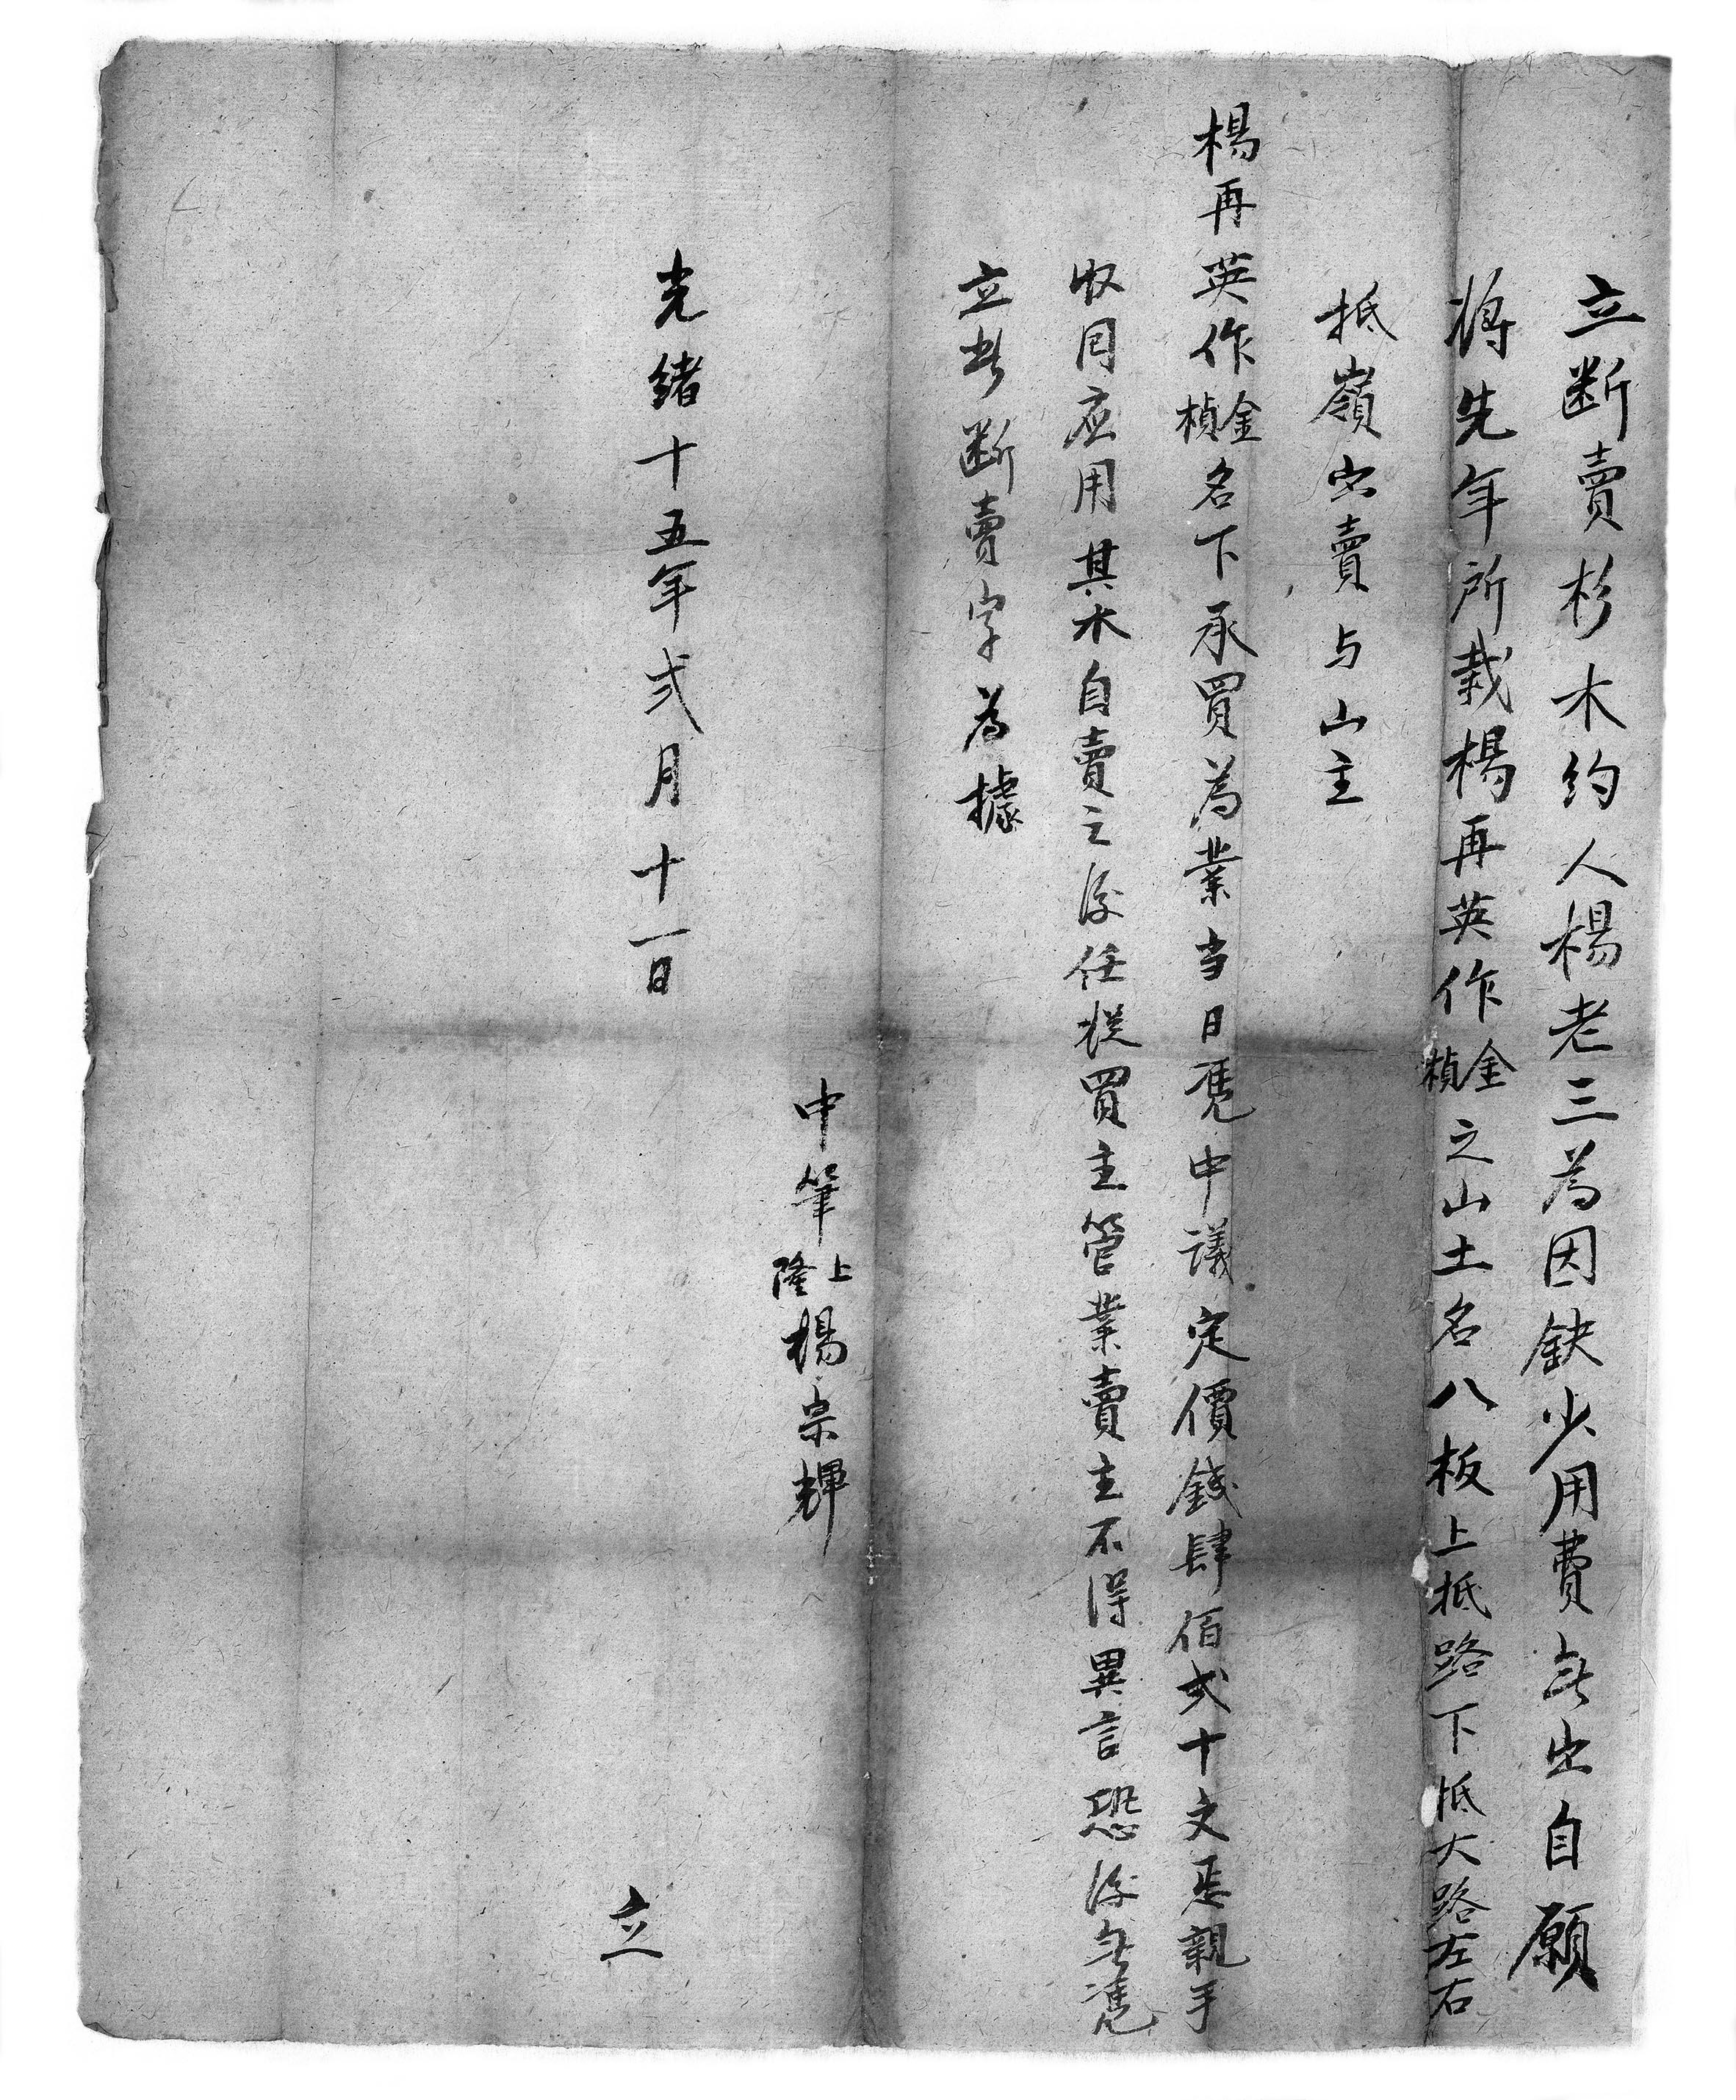 立断賣杉木約人楊老三為因缺少用費無出自願
将先年所栽楊再英作金楨之山土名八板上抵路下抵大路左右
抵嶺出賣与山主
楊再英作金楨名下承買為業当日凴中議定價錢肆佰弍十文正親手
收回应用其木自賣之後任從買主管業賣主不得異言恐後無凴
立此断賣字為據
中筆上隆楊宗輝
光緒十五年弍月十一日立